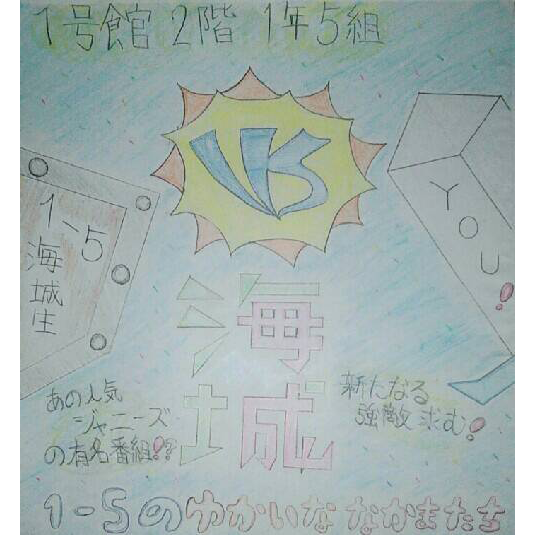 1号館 2階 1年5組
VS
1、5
海城生
YOU!
海城
あの人気
ジャニーズ
の有名番組!?
新たなる
強敵求む!
1-5のゆかいななかまたち